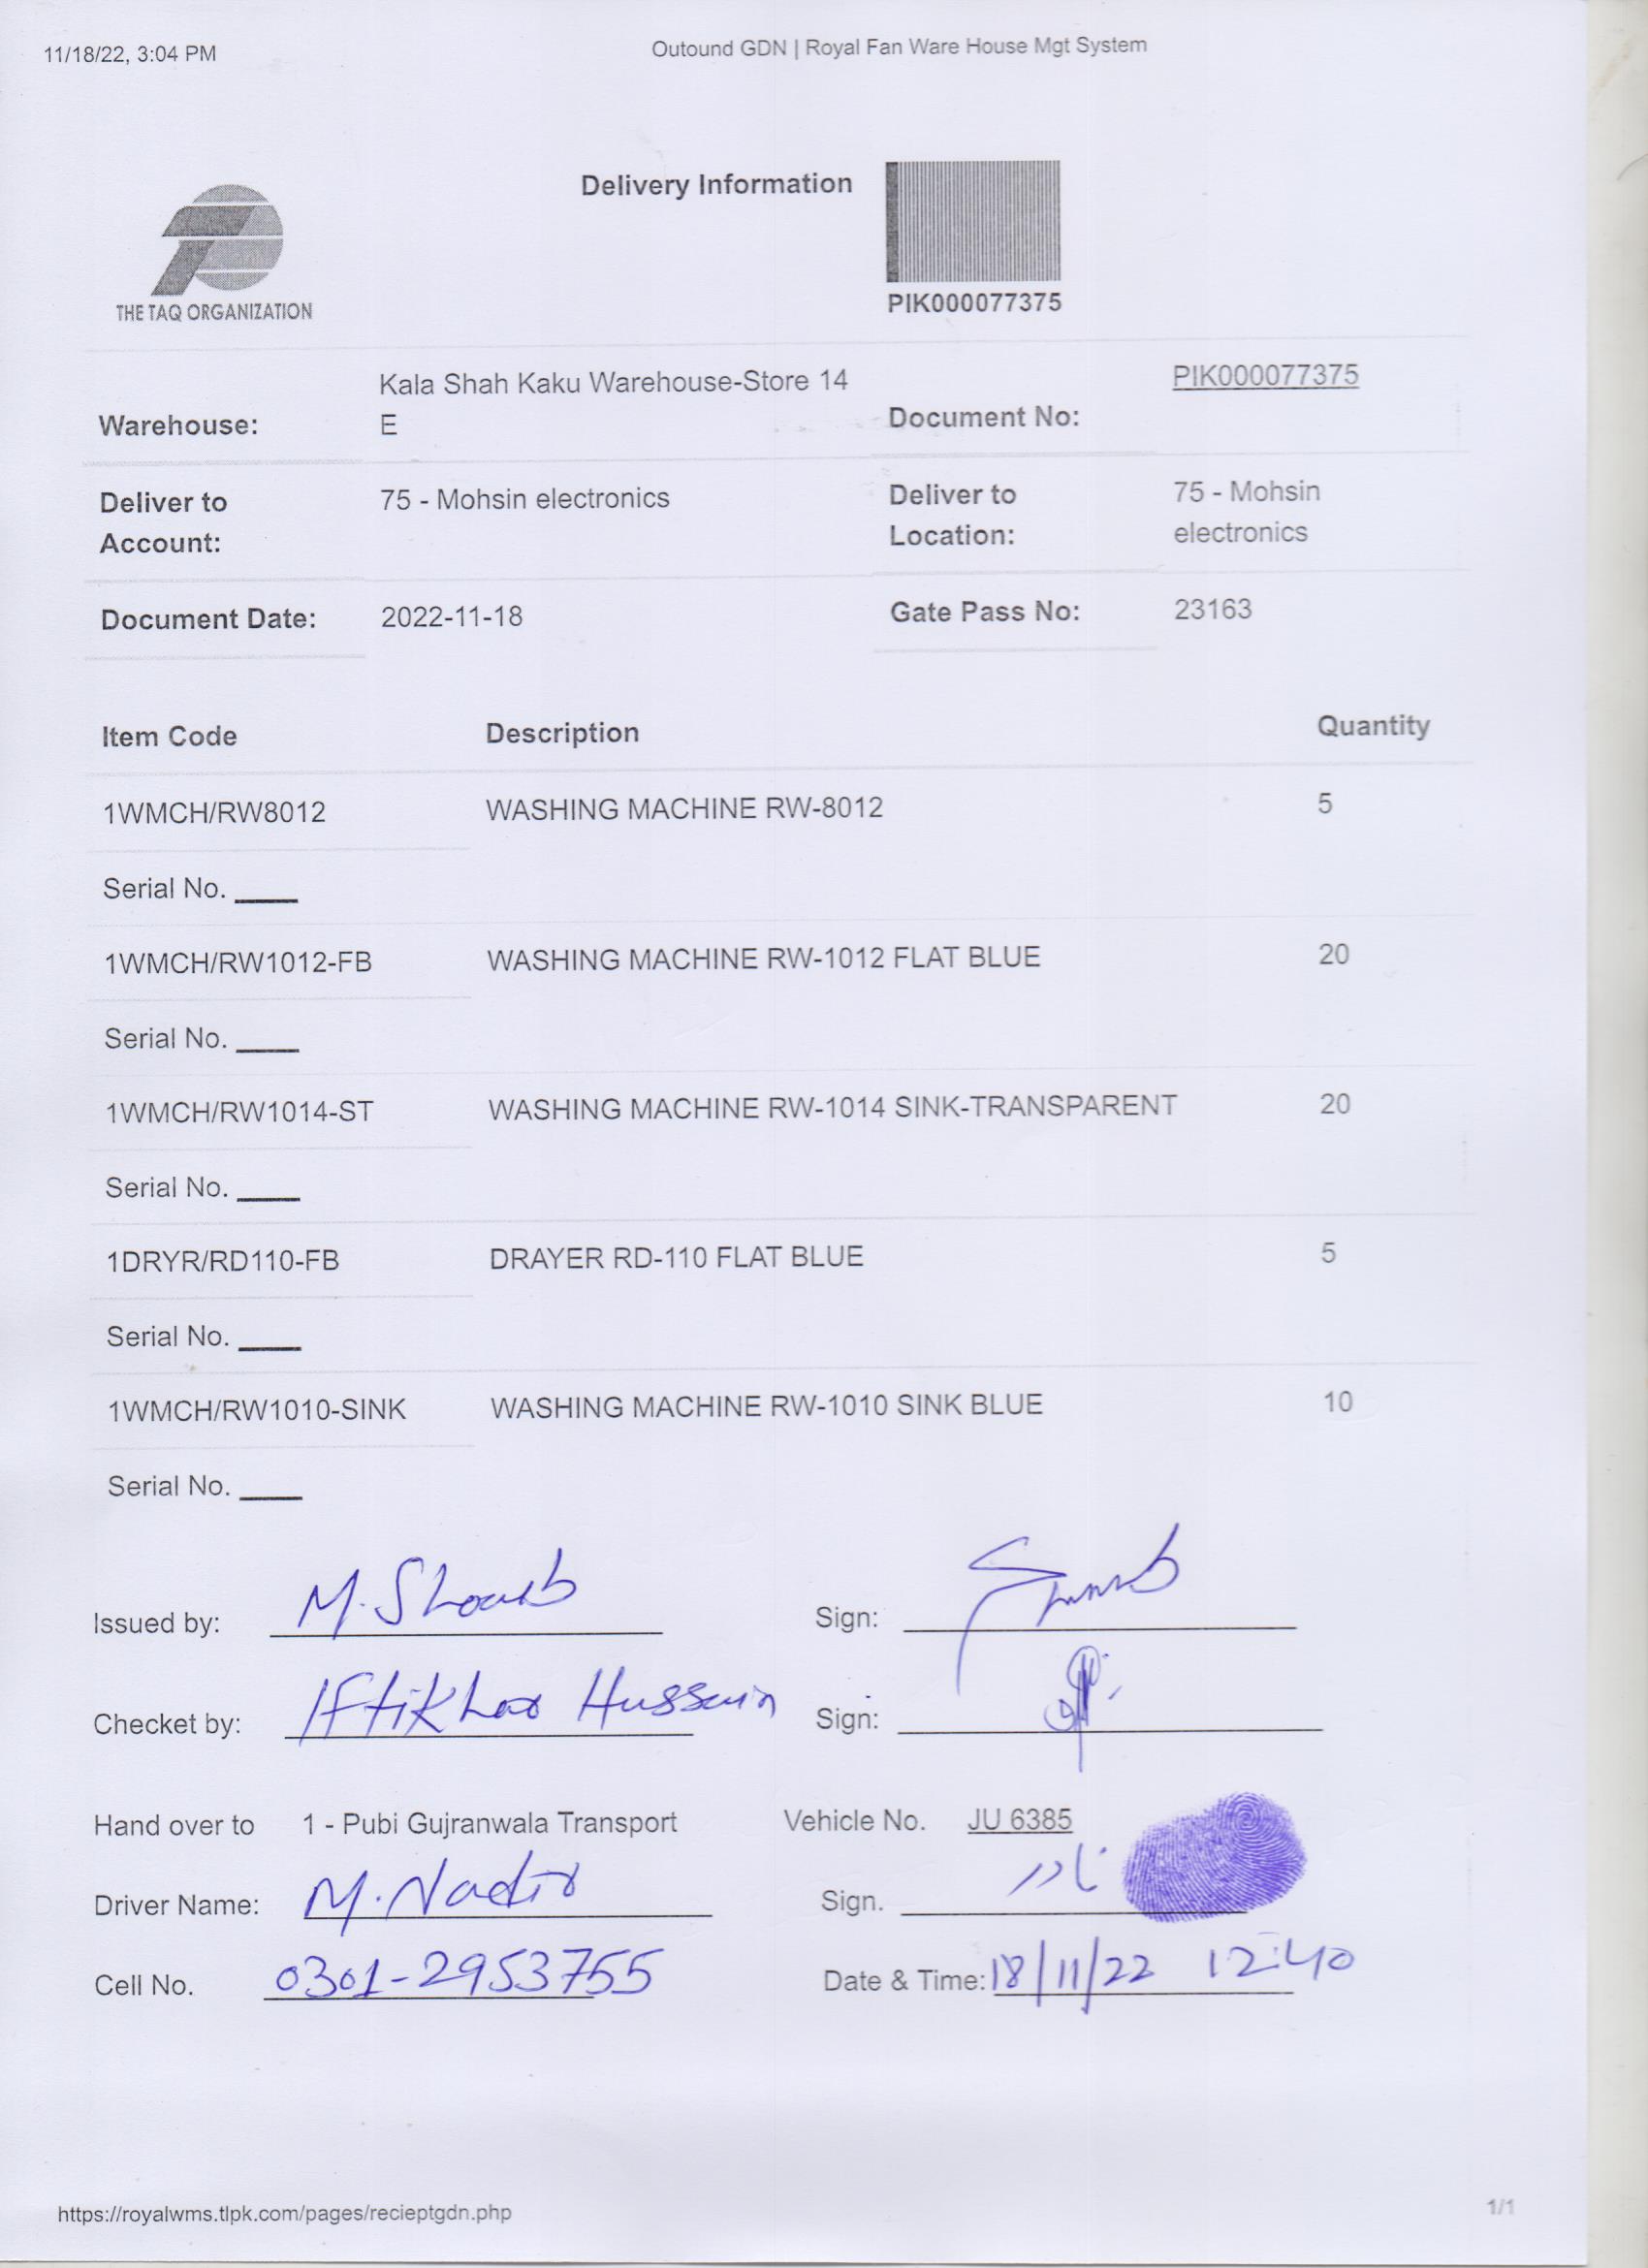 11/18/22, 3:04 PM
Outound GDN | Royal Fan Ware House Mgt System
Delivery Information
THE TAQ ORGANIZATION
PIK000077375
Warehouse: Kala Shah Kaku Warehouse-Store 14 E
Document No: PIK000077375
Deliver to Account: 75 - Mohsin electronics
Deliver to Location: 75 - Mohsin electronics
Document Date: 2022-11-18
Gate Pass No: 23163
Item Code Description Quantity
1WMCH/RW8012 WASHING MACHINE RW-8012 5
Serial No. ____
1WMCH/RW1012-FB WASHING MACHINE RW-1012 FLAT BLUE 20
Serial No. ____
1WMCH/RW1014-ST WASHING MACHINE RW-1014 SINK-TRANSPARENT 20
Serial No. ____
1DRYR/RD110-FB DRAYER RD-110 FLAT BLUE 5
Serial No. ____
1WMCH/RW1010-SINK WASHING MACHINE RW-1010 SINK BLUE 10
Serial No. ____
Issued by: M. Shoaib Sign:
Checket by: Iftikhar Hussain Sign:
Hand over to 1 - Pubi Gujranwala Transport Vehicle No. JU 6385
Driver Name: M. Nadir Sign. نادر
Cell No. 0301-2953755 Date & Time: 18/11/22 12:40
https://royalwms.tlpk.com/pages/recieptgdn.php
1/1